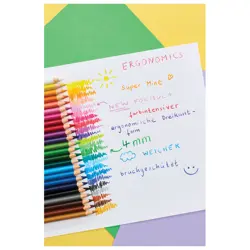 ERGONOMICS
Super Mine
NEW
farbintensiver
ergonomische Dreikant-
form
4 mm
WEICHER
bruchgeschützt